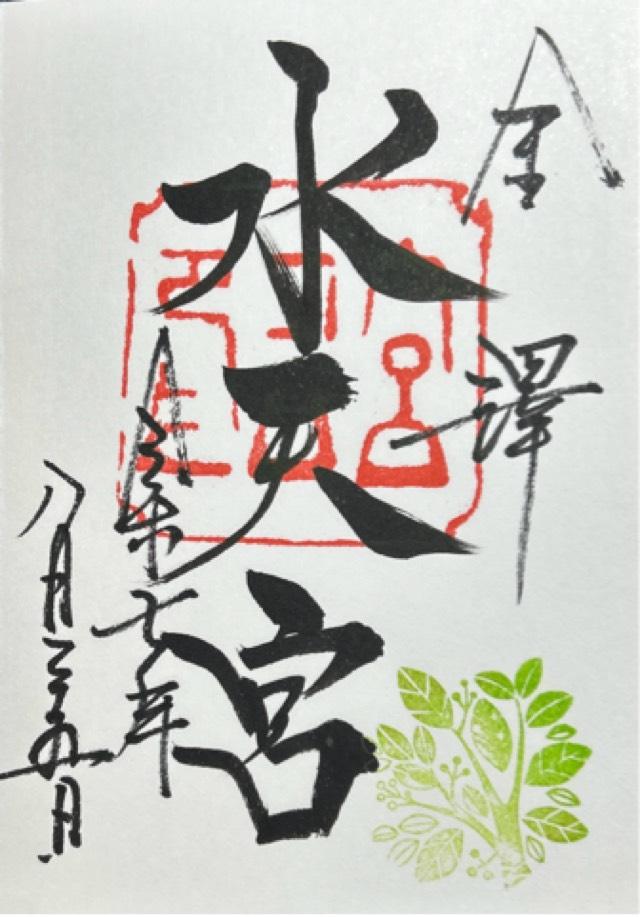 金澤
水天宮
令和七年
八月二十九日